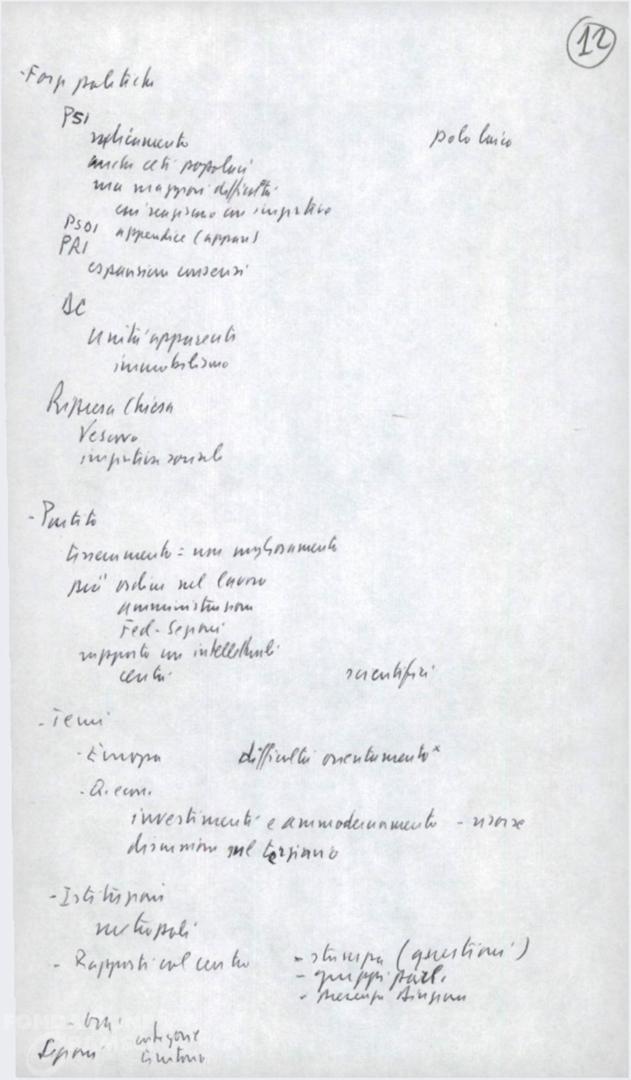 12
- Forze politiche
PSI
radicamento polo laico
anche ceti popolari
ma maggiori difficoltà
PSDI appendice (apparu)
PRI
espansione consensi
DC
Unità apparente
immobilismo
Ripresa Chiesa
Vescovo
impatto sociale
- Partito
tesseramento = non miglioramento
più ordine nel lavoro
amministrazione
Fed-Sezioni
rapporto con intellettuali
centri scientifici
- Temi
- Europa difficoltà orientamento x
- Q. econ.
investimenti e ammodernamento - risorse
discussione sul terziario
- Istituzioni
metropoli
- Rapporti col centro - stampa (questioni)
- gruppi parl.
- presenza Direzione
Sezioni categorie
territorio